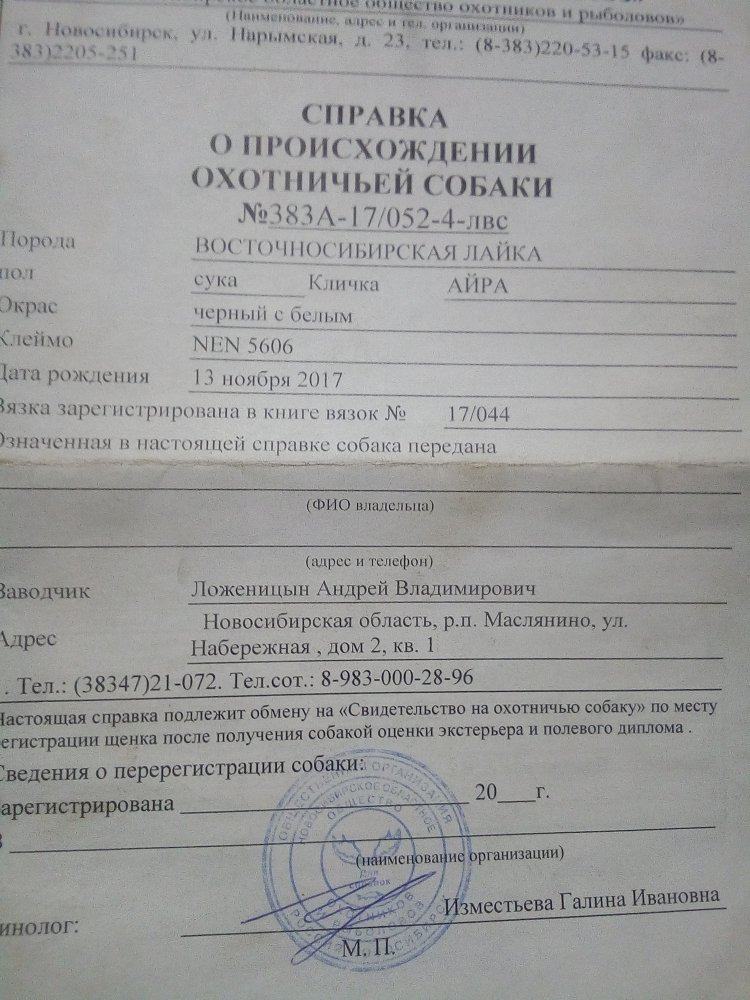 областное общество охотников и рыболовов»
(Наименование, адрес и тел. организации)
г. Новосибирск, ул. Нарымская, д. 23, тел.: (8-383)220-53-15 факс: (8-
383)2205-251
СПРАВКА
О ПРОИСХОЖДЕНИИ
ОХОТНИЧЬЕЙ СОБАКИ
№383А-17/052-4-лвс
Порода ВОСТОЧНОСИБИРСКАЯ ЛАЙКА
пол сука Кличка АЙРА
Окрас черный с белым
Клеймо NEN 5606
Дата рождения 13 ноября 2017
Вязка зарегистрирована в книге вязок № 17/044
Означенная в настоящей справке собака передана
(ФИО владельца)
(адрес и телефон)
Заводчик Ложеницын Андрей Владимирович
Адрес Новосибирская область, р.п. Маслянино, ул.
Набережная , дом 2, кв. 1
. Тел.: (38347)21-072. Тел.сот.: 8-983-000-28-96
Настоящая справка подлежит обмену на «Свидетельство на охотничью собаку» по месту
регистрации щенка после получения собакой оценки экстерьера и полевого диплома .
Сведения о перерегистрации собаки:
Зарегистрирована 20 г.
В
(наименование организации)
ОБЩЕСТВЕННАЯ ОРГАНИЗАЦИЯ
НОВОСИБИРСКОЕ ОБЛАСТНОЕ
ОБЩЕСТВО
Для
справок
Кинолог: Изместьева Галина Ивановна
М. П.